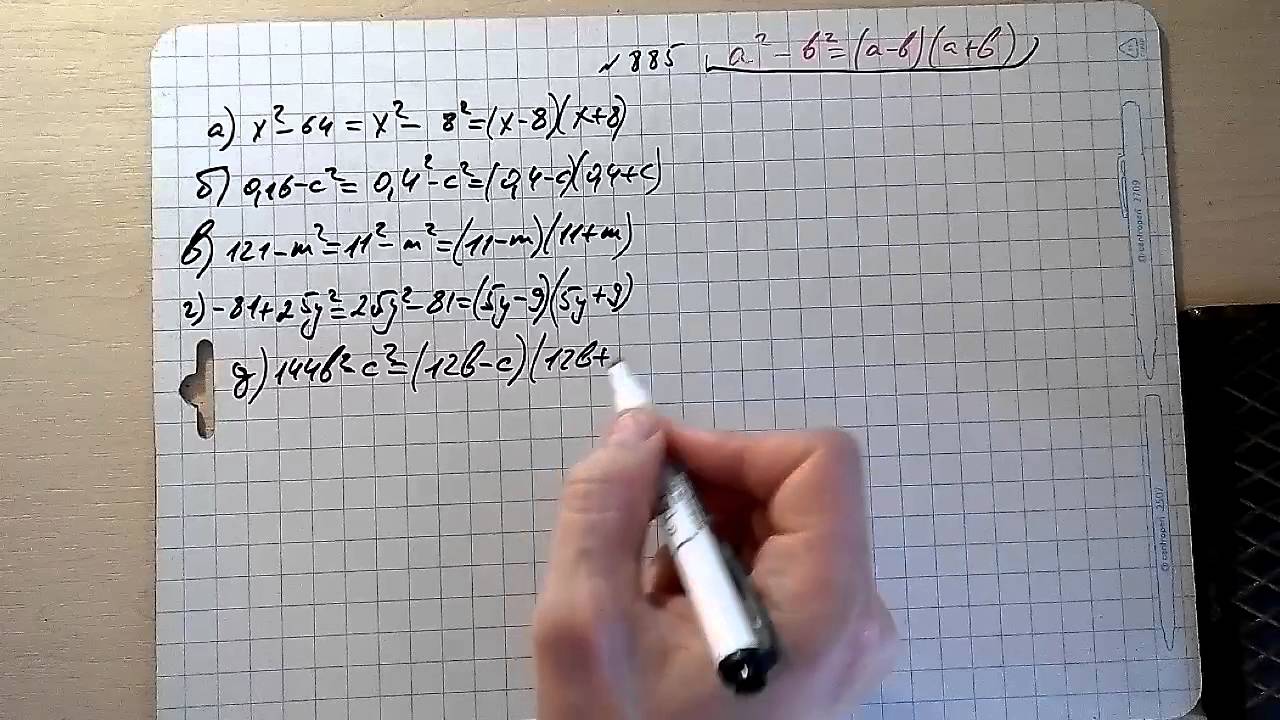 № 885 a² - b² = (a-b)(a+b)
а) x² - 64 = x² - 8² = (x-8)(x+8)
б) 0,16 - c² = 0,4² - c² = (0,4-c)(0,4+c)
в) 121 - m² = 11² - m² = (11-m)(11+m)
г) -81 + 25y² = 25y² - 81 = (5y-9)(5y+9)
д) 144b² - c² = (12b-c)(12b+